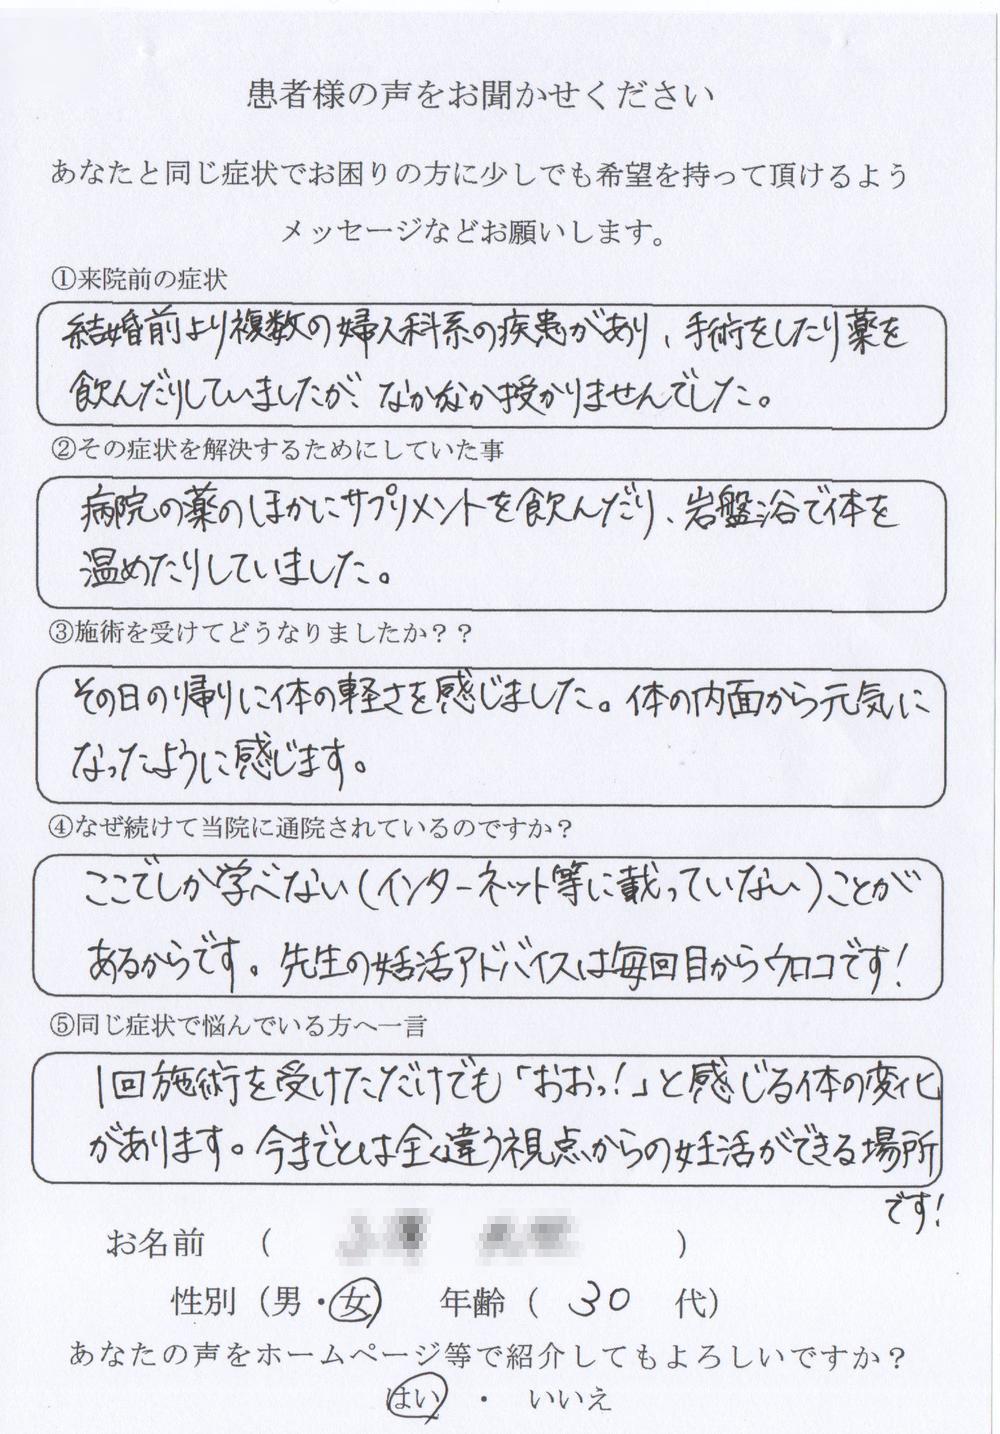 患者様の声をお聞かせください
あなたと同じ症状でお困りの方に少しでも希望を持って頂けるよう
メッセージなどお願いします。
①来院前の症状
結婚前より複数の婦人科系の疾患があり、手術をしたり薬を
飲んだりしていましたが、なかなか授かりませんでした。
②その症状を解決するためにしていた事
病院の薬のほかにサプリメントを飲んだり、岩盤浴で体を
温めたりしていました。
③施術を受けてどうなりましたか？？
その日の帰りに体の軽さを感じました。体の内面から元気に
なったように感じます。
④なぜ続けて当院に通院されているのですか？
ここでしか学べない(インターネット等に載っていない)ことが
あるからです。先生の妊活アドバイスは毎回目からウロコです!
⑤同じ症状で悩んでいる方へ一言
1回施術を受けただけでも「おおっ!」と感じる体の変化
があります。今までとは全く違う視点からの妊活ができる場所
です!
お名前 ( )
性別（男・女） 年齢（ 30 代）
あなたの声をホームページ等で紹介してもよろしいですか？
はい ・ いいえ